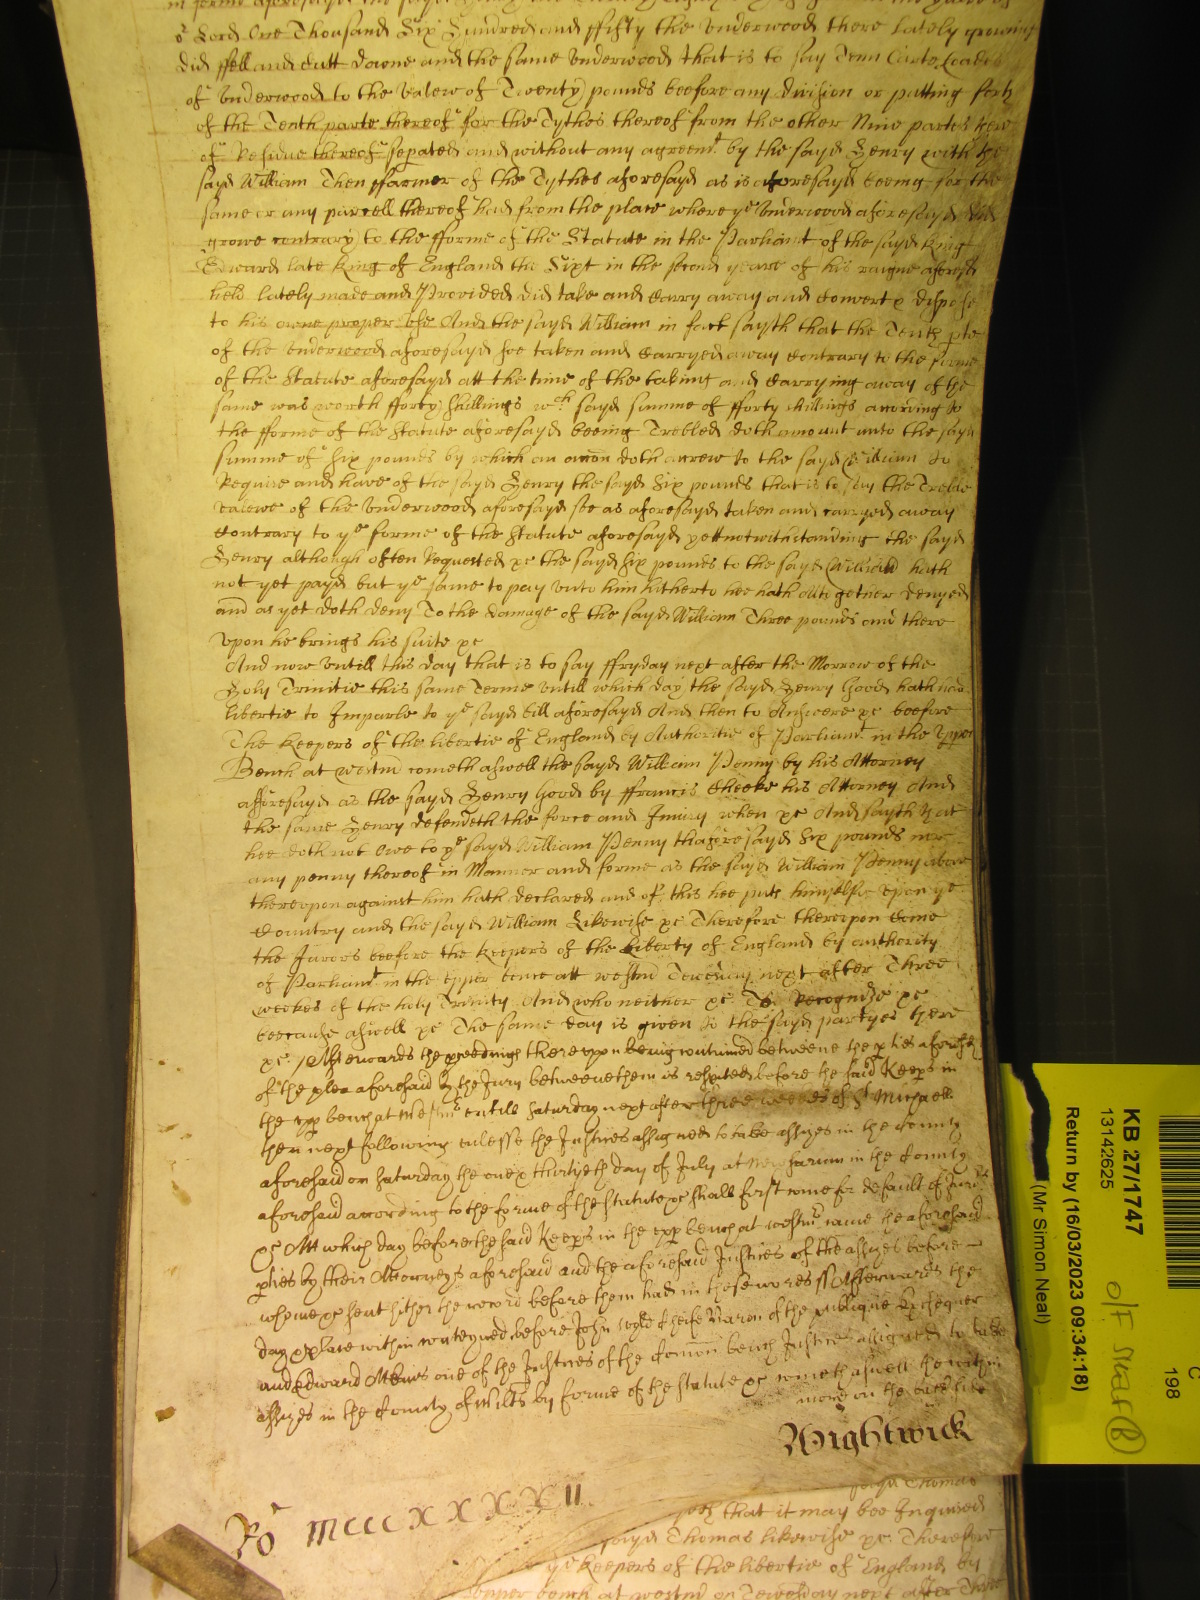 in forme aforesayd the sayd
or Lord One Thousand Six Hundred and ffifty the Underwood there lately growing
did ffell and Cutt downe and the same Underwood that is to say Tenn Carte Loades
of Underwood to the valew of Twenty pounds beefore any division or putting forth
of the Tenth parte thereof for the Tythes thereof from the other Nine partes
of Residue thereof sepated and without any agreemt by the sayd Henry with the
sayd William Then ffarmer of the Tythes aforesayd as is aforesayd beeing for the
same or any parcell thereof had from the place where ye Underwood aforesayd did
growe contrary to the fforme of the Statute in the Parliamt of the sayd King
Edward late King of England the Sixt in the second yeare of his raigne aforesd
held lately made and Provided did take and Carry away and Convert & dispose
to his owne proper Use And the sayd William in fact sayth that the Tenth pte
of the Underwood aforesayd soe taken and Carryed away Contrary to the forme
of the Statute aforesayd att the time of the taking and Carrying away of the
same was worth fforty Shillings wch sayd summe of fforty shillings according to
the fforme of the Statute aforesayd beeing Trebled doth amount unto the sayd
summe of Six pounds by which an accon doth accrew to the sayd William to
Require and have of the sayd Henry the sayd Six pounds that is to say the Treble
valewe of the Underwood aforesayd soe as aforesayd taken and carryed away
Contrary to ye forme of the Statute aforesayd yett notwithstanding the sayd
Henry although often Requested &c the sayd Six pounds to the sayd William hath
not yet payd but ye same to pay unto him hitherto hee hath altogether denyed
and as yet doth deny To the damage of the sayd William Three pounds and there
upon he brings his suite &c
And now untill this day that is to say ffryday next after the Morrow of the
Holy Trinitie this same Terme untill which day the sayd Henry Good hath had
libertie to Imparle to ye sayd bill aforesayd And then to Answere &c beefore
The Keepers of the libertie of England by Authoritie of Parliamt in the Upper
Bench at Westm cometh aswell the sayd William Penny by his Attorney
afforesayd as the sayd Henry Good by ffrancis Cheeke his Attorney And
the same Henry defendeth the force and Iniury when &c And sayth that
hee doth not Owe to ye sayd William Penny thaforesayd Six pounds nor
any penny thereof in Manner and forme as the sayd William Penny above
thereupon against him hath declared and of this hee puts himselfe upon ye
Country and the sayd William Likewise &c Therefore thereupon Come
the Jurors beefore the Keepers of the Liberty of England by authority
of Parliamt in the upper bence att Westm Tewesday next after Three
weekes of the holy Trinity And who neither &c To Recognize &c
beecause aswell &c The same day is given to the sayd partyes there
&c / Afterwards the pceedings thereupon being continued betweene the pties aforesd
of the plea aforesaid by the Jury betweene them is respited before the said Keeps in
the upp bench at Westmr untill Saturday next after three weekes of St Michaell
then next following unlesse the Justices assigned to take assizes in the County
aforesaid on Saturday the one & thirtyeth day of July at New Sarum in the County
aforesaid according to the forme of the statute &c shall first come for default of Jurors
&c Att which day before the said Keeps in the upp bench at Westmr came the aforesaid
pties by their Attorneys aforesaid and the aforesaid Justices of the assizes before
whome &c sent hither the record before them had in these wordes ss Afterwards the
day & place within conteyned before John Wylde Cheife Baron of the publique Exchequer
and Edward Atkins one of the Justices of the Comon bench Justices assigned to take
assizes in the County of Wilts by forme of the statute &c cometh aswell the within
more on the back side
Wightwick
Ro MCCCXXXXII
sayd Thomas
that it may bee Inquired
sayd Thomas likewise &c Therefore
ye keepers of the libertie of England by
upper bench at westm on Tewesday next after Three
KB 27/1747
13142625
Return by (16/03/2023 09:34:18)
(Mr Simon Neal)
C
198